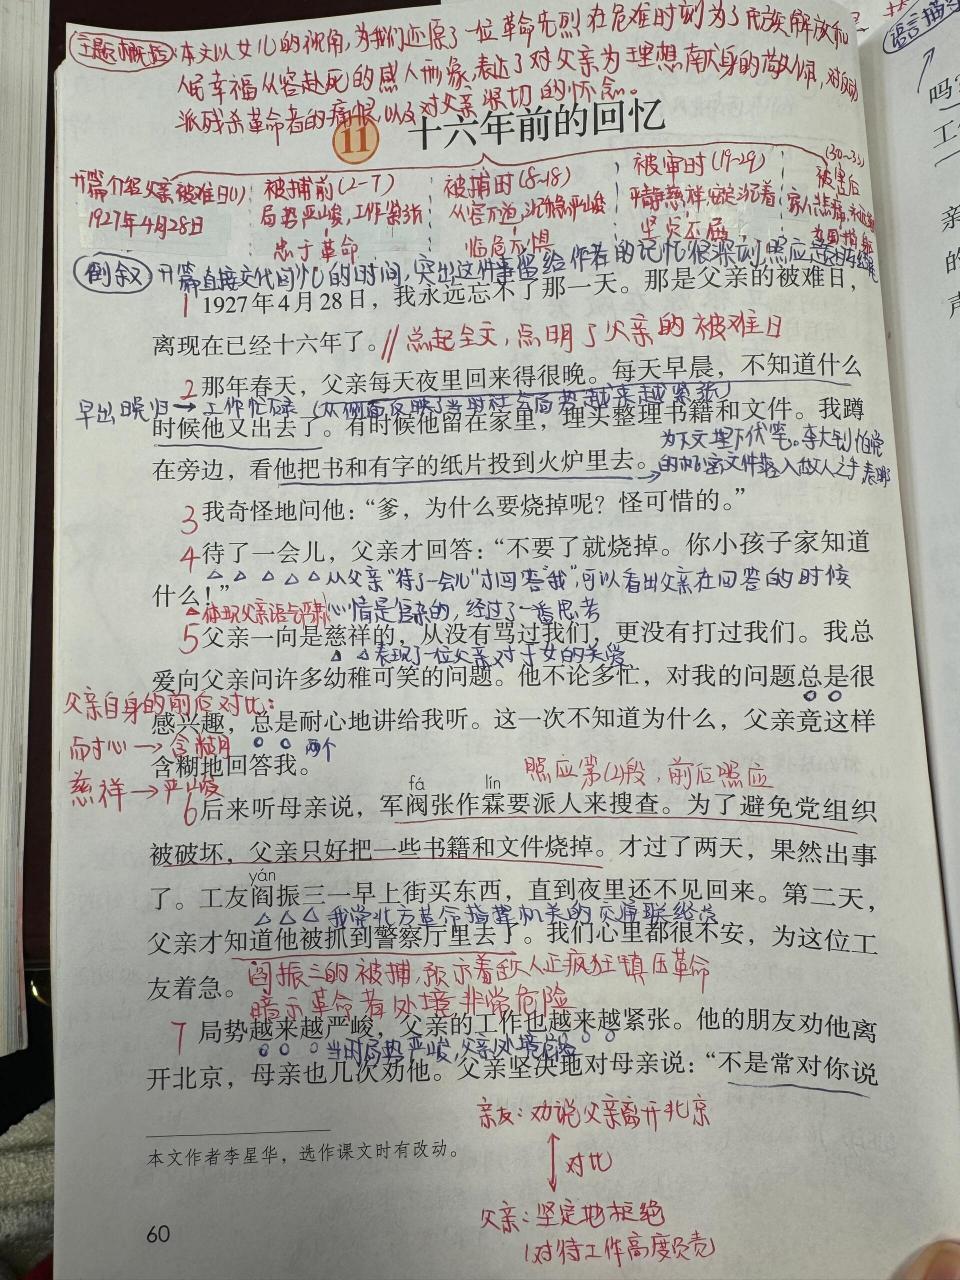 主题概括:本文以女儿的视角,为我们还原了一位革命先烈在危难时刻为了民族解放和
人民幸福从容赴死的感人形象,表达了对父亲为理想献身的敬仰,对反动
派残杀革命者的痛恨,以及对父亲深切的怀念。
11 十六年前的回忆
开篇介绍父亲被难日(1)
1927年4月28日
被捕前(2-7)
局势严峻,工作紧张
忠于革命
被捕时(8-18)
从容不迫,沉稳严峻
临危不惧
被审时(19-29)
平静慈祥安定沉着
坚贞不屈
被害后
倒叙 开篇直接交代回忆的时间,突出这件事留给作者的记忆很深刻,照应
1 1927年4月28日,我永远忘不了那一天。那是父亲的被难日,
离现在已经十六年了。//总起全文,点明了父亲的被难日
2 那年春天,父亲每天夜里回来得很晚。每天早晨,不知道什么
早出晚归→工作忙碌(从侧面反映了当时社会局势越来越紧张)
时候他又出去了。有时候他留在家里,埋头整理书籍和文件。我蹲
为下文埋下伏笔。李大钊怕党
在旁边,看他把书和有字的纸片投到火炉里去。→的机密文件落入敌人之手
3 我奇怪地问他:“爹,为什么要烧掉呢?怪可惜的。”
4 待了一会儿,父亲才回答:“不要了就烧掉。你小孩子家知道
从父亲“待了一会儿”才回答“我”,可以看出父亲在回答的时候
什么!”
体现父亲语气严肃 心情是复杂的,经过了一番思考
5 父亲一向是慈祥的,从没有骂过我们,更没有打过我们。我总
表现了一位父亲对子女的关爱
爱向父亲问许多幼稚可笑的问题。他不论多忙,对我的问题总是很
父亲自身的前后对比:
感兴趣,总是耐心地讲给我听。这一次不知道为什么,父亲竟这样
耐心→含糊 两个
含糊地回答我。
慈祥→严峻
照应第(2)段,前后照应
fá lín
6 后来听母亲说,军阀张作霖要派人来搜查。为了避免党组织
被破坏,父亲只好把一些书籍和文件烧掉。才过了两天,果然出事
yán
了。工友阎振三一早上街买东西,直到夜里还不见回来。第二天,
我党北方革命指挥机关的交通联络员
父亲才知道他被抓到警察厅里去了。我们心里都很不安,为这位工
友着急。
阎振三的被捕,预示着敌人正疯狂镇压革命
暗示革命者处境非常危险
7 局势越来越严峻,父亲的工作也越来越紧张。他的朋友劝他离
当时局势严峻,父亲处境危险
开北京,母亲也几次劝他。父亲坚决地对母亲说:“不是常对你说
亲友:劝说父亲离开北京
对比
父亲:坚定地拒绝
(对待工作高度负责)
本文作者李星华,选作课文时有改动。
60
语言描写
吗?
工
亲
的
声